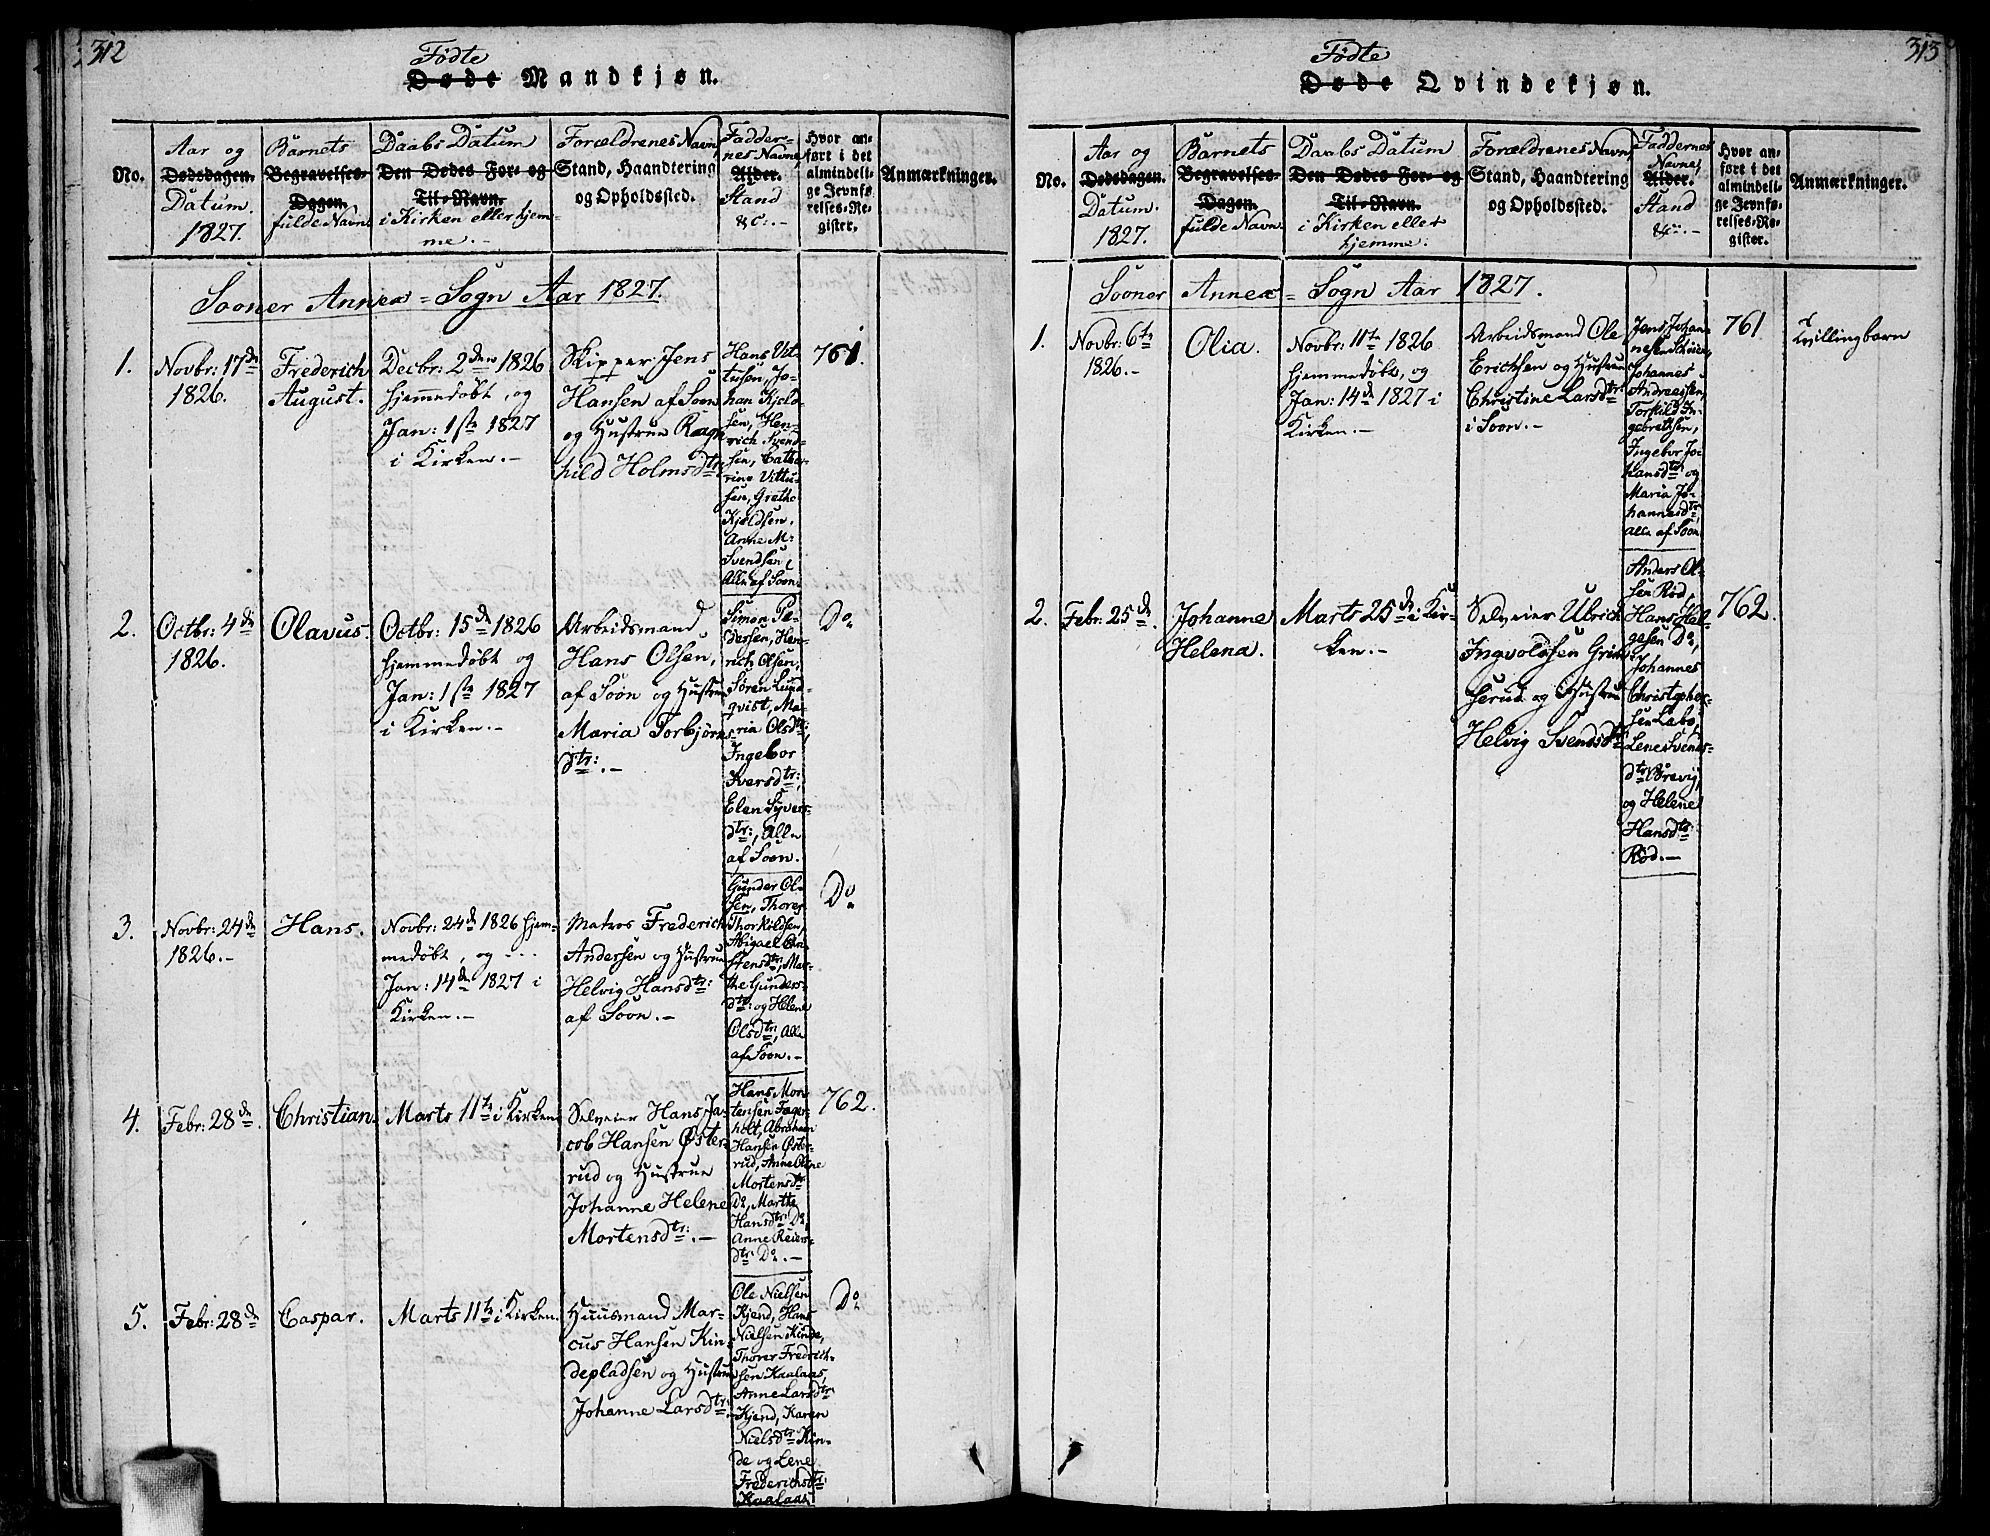 312
Födte
Døde Mandkjøn.
No.
Aar og
Dødsdagen.
Datum.
1827.
Barnets
Begravelses-
Dagen.
fulde Navn
Daabs Datum
Den Dødes For- og
Til-Navn.
i Kirken eller hjem-
me.-
Forældrenes Navn,
Stand, Haandtering
og Opholdssted.
Fadder-
nes Navne,
Alder.
Stand
&c:.-
Hvor an-
ført i det
almindeli-
ge Jevnfø-
relses-Re-
gister.
Anmærkninger.
Sooner Annex-Sogn Aar 1827.
1.
Novbr: 17de
1826.
Frederich
August.
Decbr: 2den 1826
hjemmedøbt, og
Jan: 1ste 1827
i Kirken.-
Skipper Jens
Hansen af Soon
og Hustrue Ragn
hild Holmsdtr:
Hans Vit-
tusen, Jo-
han Kjeld-
sen, Hen-
rich Svend-
sen, Cathe-
rine Vittu-
sen, Grethe
Kjeldsen,
Anne M-
Svendsen,
Alle af Soon.
761.
2.
Octbr: 4de
1826.
Olavus.
Octbr: 15de 1826
hjemmedøbt og
Jan: 1ste 1827
i Kirken.-
Arbeidsmand
Hans Olsen,
af Soon og Hustrue
Maria Torbjørns-
dtr:.-
Simon Pe-
dersen, Hen-
rich Olsen,
Søren Lund-
qvist, Ma-
ria Olsdtr:,
Ingebor
Iversdtr:,
Elen Syvers-
dtr:, Alle
af Soon.
Do
3.
Novbr: 24de
1826.-
Hans.
Novbr: 24de 1826 hjem-
medøbt, og ---
Jan: 14de 1827 i
Kirken.-
Matros Frederich
Andersen og Hustrue
Helvig Hansdtr:
af Soon.-
Gunder Ol-
sen, Thores
Thorkildsen,
Abigael
Mar-
the Gunders-
dtr: og Helene
Olsdtr:, Alle
af Soon.-
Do
4.
Febr: 28de.
Christian.
Marts 11te i Kirken
Selveier Hans Ja-
cob Hansen Øster-
rud og Hustrue
Johanne Helene
Mortensdtr:.-
Hans Mor-
tensen Fager-
holt, Abraham
Hansen Øster-
rud, Anne Oline
Mortensdtr
Do, Marthe
Hansdtr: Do,
Anne Reiers-
dtr: Do.-
762.
5.
Febr: 28de
Caspar.
Marts 11te i Kirken.
Huusmand Mar-
cus Hansen Kin-
depladsen og Hustrue
Johanne Larsdtr:
Ole Nielsen
Kjend, Hans
Nielsen Kinde,
Thorer Fredrich-
sen Kaalaas,
Anne Larsdtr
Kjend, Karen
Nielsdtr Kin-
de og Lene
Frederichsdtr:
Kaalaas.
Do
313
Födte
Døde Qvindekjøn.
No.
Aar og
Dødsdagen.
Datum.
1827.
Barnets
Begravelses-
Dagen.
fulde Navn.
Daabs Datum
Den Dødes For- og
Til-Navn.
i Kirken eller
hjemme:
Forældrenes Navn,
Stand, Haandtering
og Opholdssted.
Faddernes
Navne,
Alder.
Stand
&c:.-
Hvor an-
ført i det
almindeli-
ge Jevnfø-
relses-Re-
gister.
Anmærkninger.
Sooner Annex-Sogn Aar 1827.
1.
Novbr: 6te
1826.-
Olia.
Novbr: 11te 1826
hjemmedøbt, og
Jan: 14de 1827 i
Kirken.-
Arbeidsmand Ole
Erichsen og Hustrue
Christine Larsdtr:
i Soon.-
Jens Johan-
nesen
Johannes
Andreesen,
Torkild In-
gebretsen,
Ingebor Jo-
hansdtr og
Maria Jo-
hannesdtr,
alle af Soon
761
Tvillingbarn
2.
Febr: 25de.
Johanne
Helena.
Marts 25de i Kir-
ken.-
Selveier Ulrich
Ingvoldsen Grim-
serud og Hustrue
Helvig Svendsdtr
Anders Ol-
sen Röd,
Hans Hel-
gesen Do,
Johannes
Christopher-
sen Labo,
Lene Svens-
dtr Brevig,
og Helene
Hansdtr:
Röd.-
762.